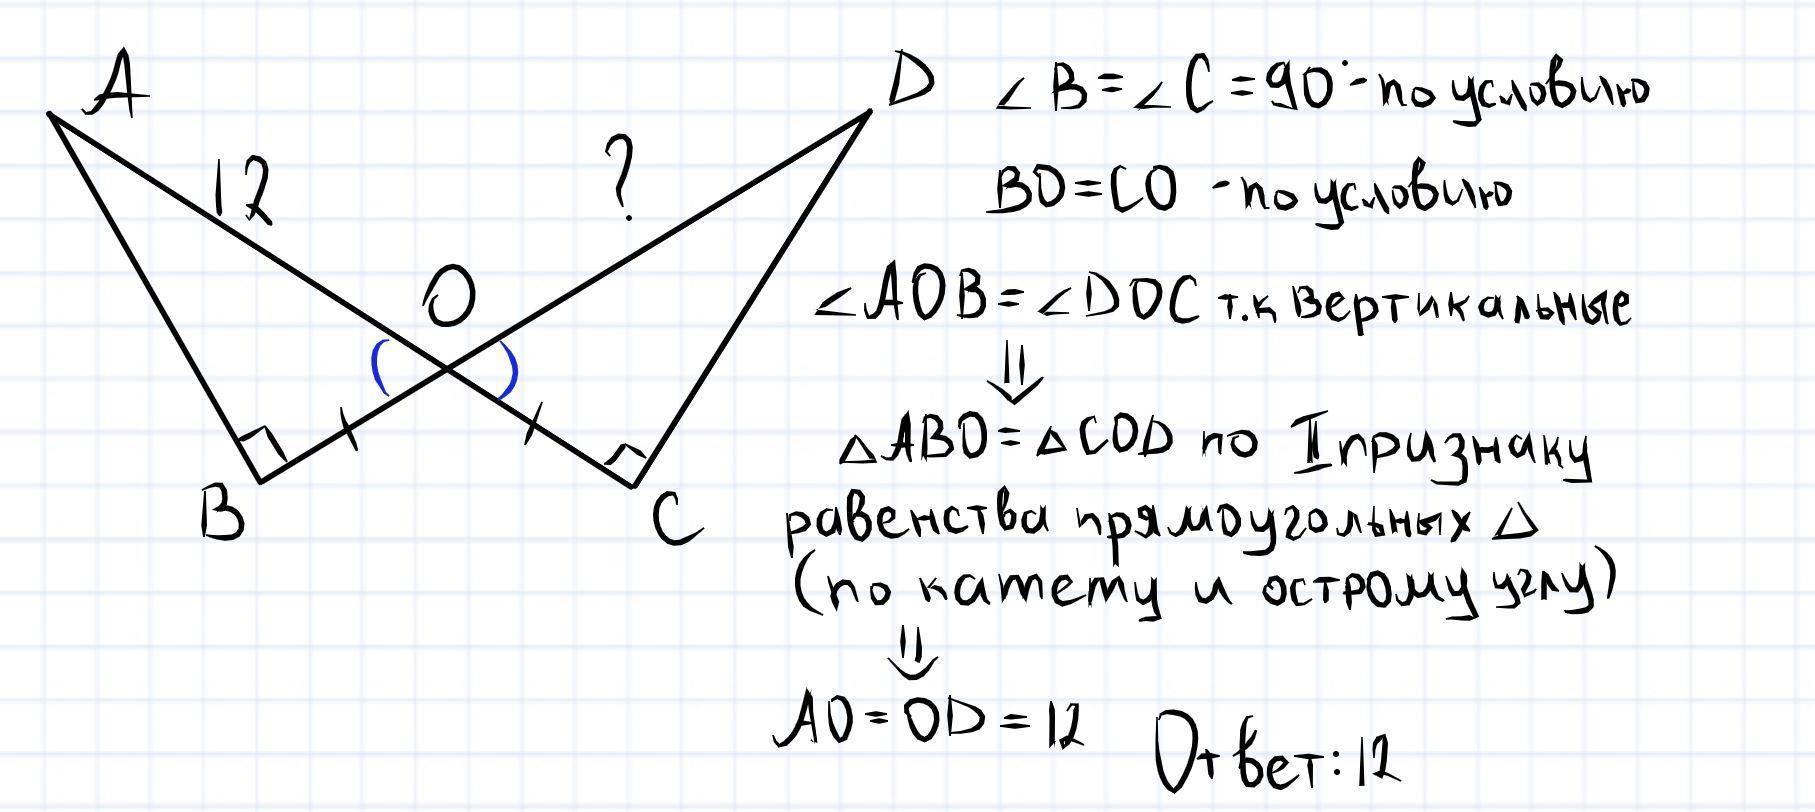 A
D
12
?
O
B
C
∠B=∠C=90°-по условию
BO=CO - по условию
∠AOB=∠DOC т.к вертикальные
⇓
△ABO=△COD по II признаку
равенства прямоугольных △
(по катету и острому углу)
⇓
AO=OD=12
Ответ:12